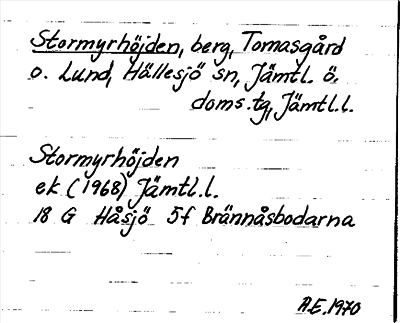 Stormyrhöjden, berg, Tomasgård
o. Lund, Hällesjö sn, Jämtl. ö.
doms.tg, Jämtl.l.
Stormyrhöjden
ek (1968) Jämtl.l.
18 G Håsjö 5f Brännåsbodarna
A.E. 1970